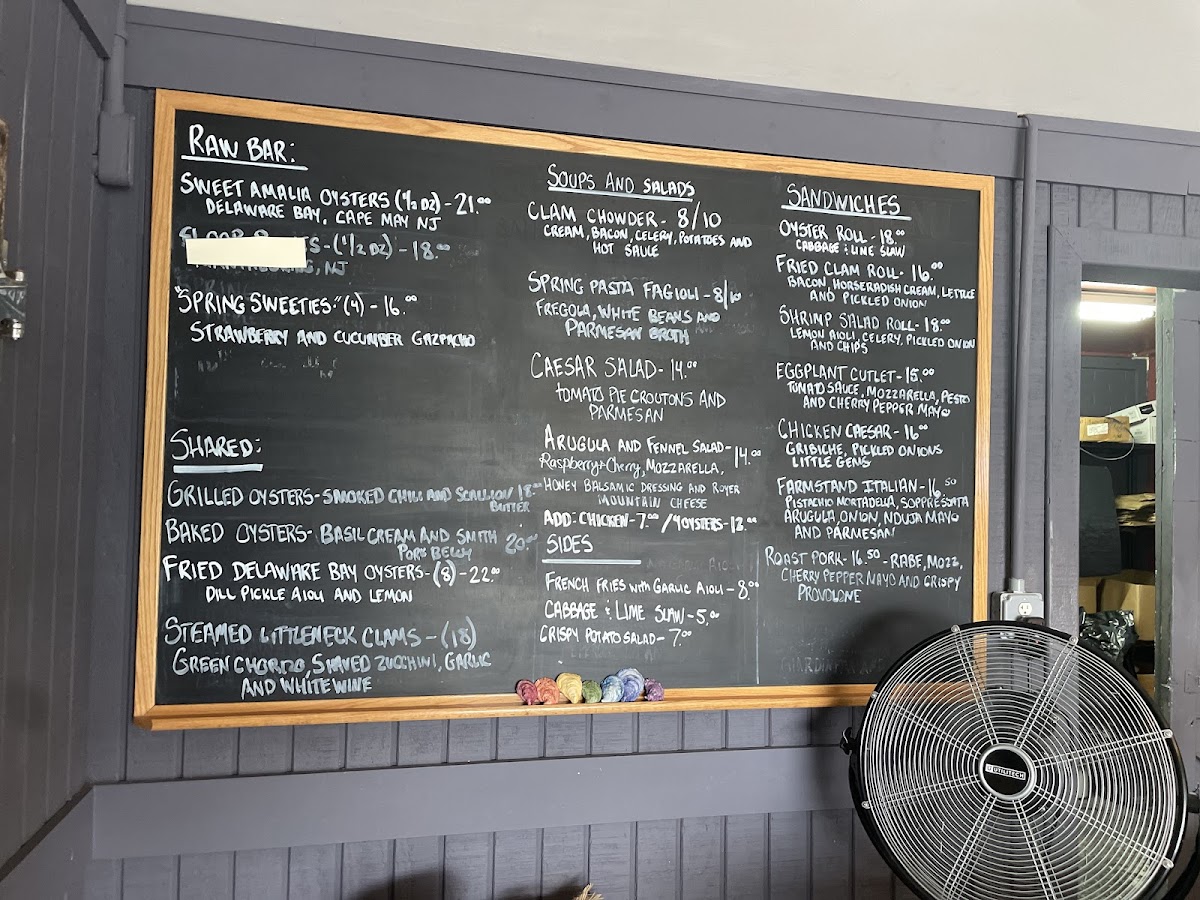 RAW BAR:
SWEET AMALIA OYSTERS (1/2 DZ) - 21.00
DELAWARE BAY, CAPE MAY NJ
-(1/2 DZ) - 18.00
, NJ
"SPRING SWEETIES" (4) - 16.00
STRAWBERRY AND CUCUMBER GAZPACHO
SHARED:
GRILLED OYSTERS - SMOKED CHILI AND SCALLION 18.00
BUTTER
BAKED OYSTERS - BASIL CREAM AND SMITH 20.00
PORK BELLY
FRIED DELAWARE BAY OYSTERS - (8) - 22.00
DILL PICKLE AIOLI AND LEMON
STEAMED LITTLENECK CLAMS - (18)
GREEN CHORIZO, SHAVED ZUCCHINI, GARLIC
AND WHITE WINE
SOUPS AND SALADS
CLAM CHOWDER - 8/10
CREAM, BACON, CELERY, POTATOES AND
HOT SAUCE
SPRING PASTA FAGIOLI - 8/10
FREGOLA, WHITE BEANS AND
PARMESAN BROTH
CAESAR SALAD - 14.00
TOMATO PIE CROUTONS AND
PARMESAN
ARUGULA AND FENNEL SALAD - 14.00
Raspberry + Cherry, MOZZARELLA,
HONEY BALSAMIC DRESSING AND ROYER
MOUNTAIN CHEESE
ADD: CHICKEN - 7.00 / 4 OYSTERS - 12.00
SIDES
FRENCH FRIES WITH GARLIC AIOLI - 8.00
CABBAGE & LIME SLAW - 5.00
CRISPY POTATO SALAD - 7.00
SANDWICHES
OYSTER ROLL - 18.00
CABBAGE & LIME SLAW
FRIED CLAM ROLL - 16.00
BACON, HORSERADISH CREAM, LETTUCE
AND PICKLED ONION
SHRIMP SALAD ROLL - 18.00
LEMON AIOLI, CELERY, PICKLED ONION
AND CHIPS
EGGPLANT CUTLET - 15.00
TOMATO SAUCE, MOZZARELLA, PESTO
AND CHERRY PEPPER MAYO
CHICKEN CAESAR - 16.00
GRIBICHE, PICKLED ONIONS
LITTLE GEMS
FARMSTAND ITALIAN - 16.50
PISTACHIO MORTADELLA, SOPPRESSATA
ARUGULA, ONION, NDUJA MAYO
AND PARMESAN
ROAST PORK - 16.50 - RABE, MOZZ,
CHERRY PEPPER MAYO AND CRISPY
PROVOLONE
UTILITECH